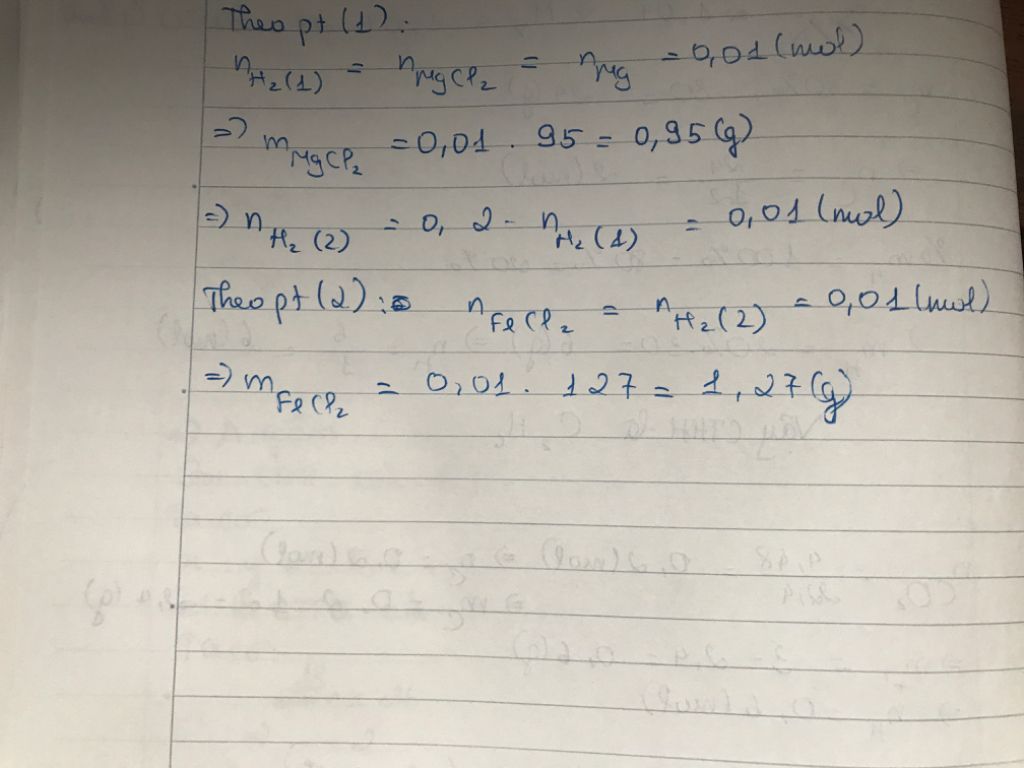 Theo pt (1):
n H₂(1) = n MgCl₂ = n Mg = 0,01 (mol)
=> m MgCl₂ = 0,01 . 95 = 0,95 (g)
=> n H₂ (2) = 0, 2 - n H₂ (1) = 0,01 (mol)
Theo pt (2): n FeCl₂ = n H₂ (2) = 0,01 (mol)
=> m FeCl₂ = 0,01 . 127 = 1,27 (g)